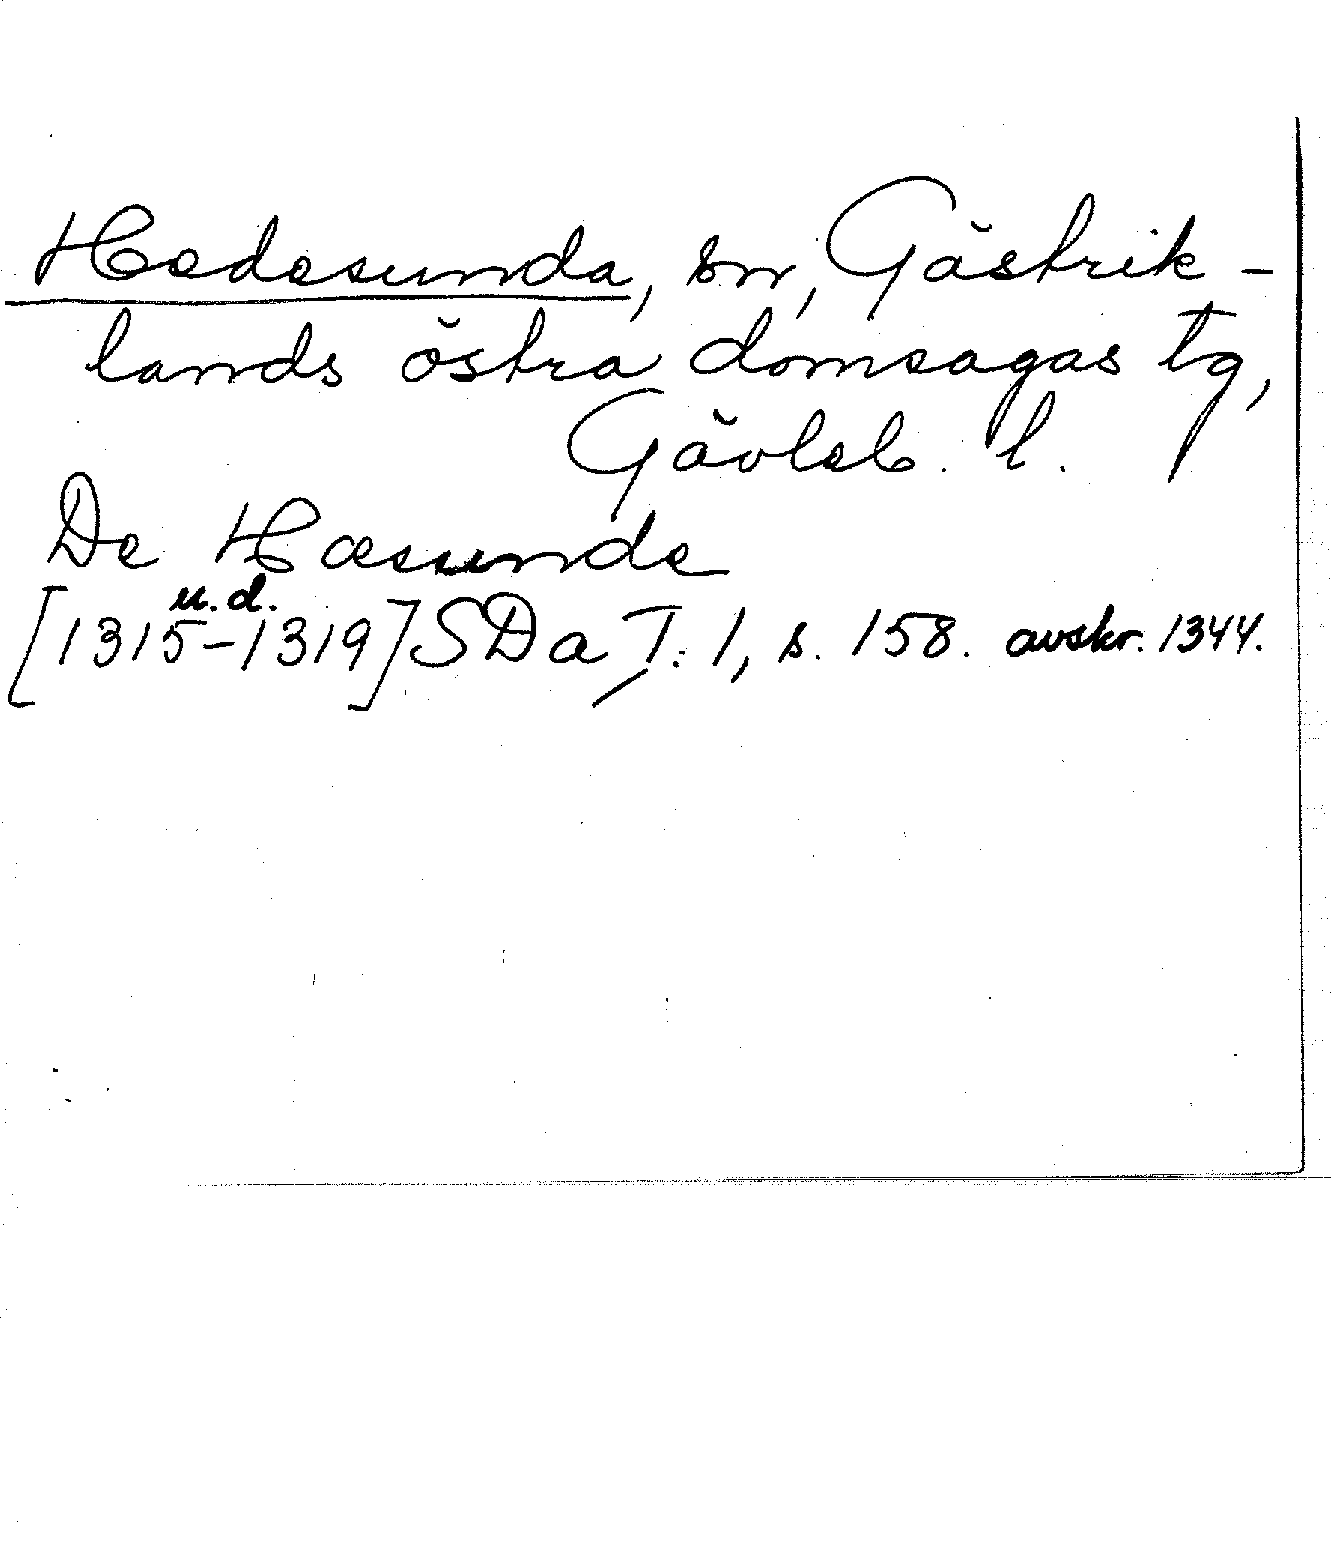 Hedesunda, sn, Gästrik-
lands östra domsagas tg,
Gävleb. l.
De Hæsunde
u.d.
[1315-1319] SDa T. 1, s. 158. avskr. 1344.